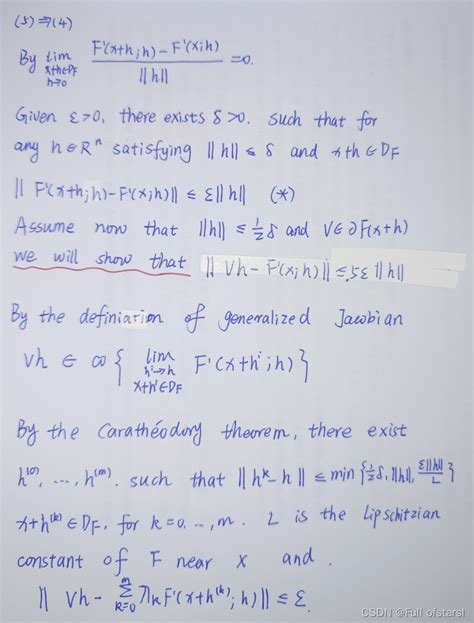 (5) ⇒ (4)
By lim_{x+h∈D_F, h→0} (F'(x+h;h) - F'(x;h)) / ||h|| = 0.
Given ε>0, there exists δ>0. such that for
any h∈Rⁿ satisfying ||h|| ≤ δ and x+h∈D_F
|| F'(x+h;h)-F'(x;h)|| ≤ ε||h|| (*)
Assume now that ||h|| ≤ ½δ and V∈∂F(x+h)
we will show that || Vh - F'(x;h)|| ≤ 5ε||h||
By the definiation of generalized Jacobian
Vh ∈ co { lim_{h'→h, x+h'∈D_F} F'(x+h';h) }
By the Carathéodory theorem, there exist
h⁽⁰⁾, ..., h⁽ᵐ⁾. such that ||hᵏ-h|| ≤ min{½δ, ||h||, ε||h||/L}
x+h⁽ᵏ⁾∈D_F, for k=0, .., m. L is the Lipschitzian
constant of F near x and.
|| Vh - Σ_{k=0}^{m} λ_k F'(x+h⁽ᵏ⁾;h)|| ≤ ε.
CSDN @Full ofstarsl